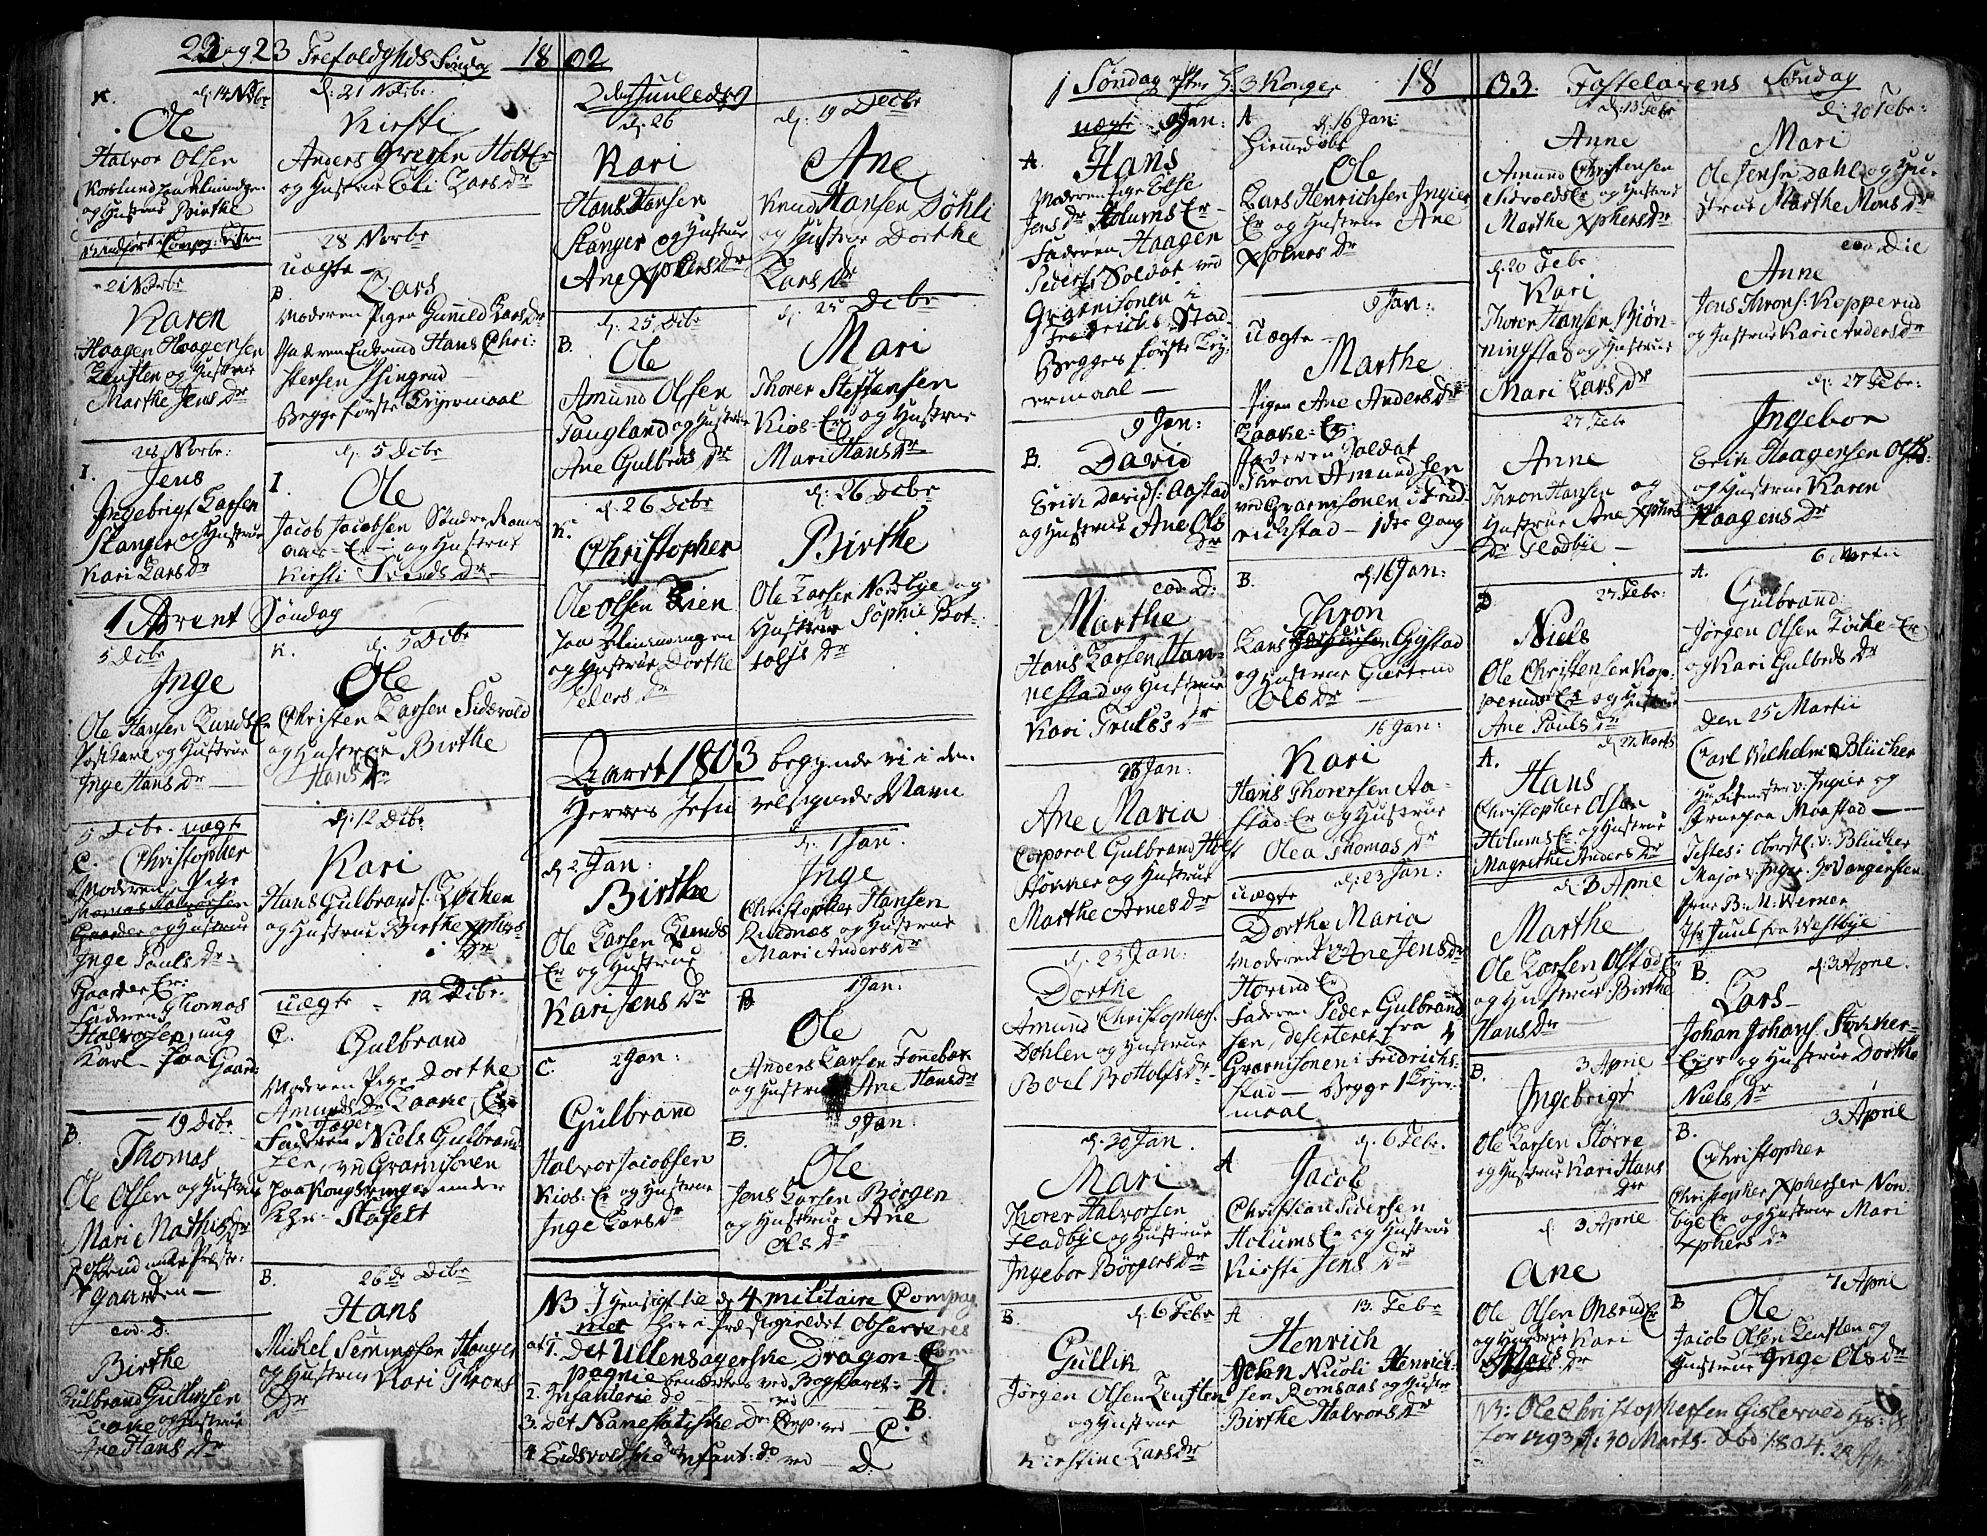 22 og 23 Trefoldgheds Søndag 1802
K. d: 14 Novbr
Ole
Halvor Olsen
og Hustrue Birthe
21 Novbr
Karen
Haagen Haagensen
og Hustrue
Marthe Jens Dr
28 Novbr:
I. Jens
Ingebrigt Larsen
Stanger og Hustrue
Kari Lars Dr
1 Advent Søndag
5 Dcbr
Inge
Ole Hansen Lunds Er
og Hustrue
Inge Hans Dr
5 Dcbr. uægte
C. Christopher
Moderen Pige
Thomas Halvorsen
Gaarder og Hustrue
Inge Pouls Dr
Gaarder Er:
Faderen Thomas
Halvorsen, ung
Karl paa Gaard:
19 Dcbr
B. Thomas
Ole Olsen og Hustrue
Mari Mathis Dr
under Præste-
gaarden
eod. D:
Birthe
Gulbrand Gullksen
og Hustrue
Ane Hans Dr
d: 21 Novbr:
Kirsti
Anders
og Hustrue Eli Lars Dr
28 Novbr
uægte
D Lars
Moderen Pigen Gunild Lars Dr
Faderen Enkemd Hans Chri-
stensen
Begge første Leiermaal
d: 5 Dcbr
I. Ole
Jacob Jacobsen Søndre Rams
aas Er og Hustrue
Kirsti Dr
K. d: 5 Dcbr
Ole
Christen Larsen Sidsvold
og Hustrue Birthe
Hans Dr
d: 12 Dcbr:
Kari
Hans Gulbrands: Løchen
og Hustrue Birthe Xphers
Dr
uægte 12 Dcbr.
C. Gulbrand
Moderen Pige Dorthe
Amunds Dr Laake Er
Faderen Niels Gulbrand
sen, ved Gvarnisonen
paa Kongsvinger under
B. 26de Dcbr
Hans
Michel Simensen Stanger
og Hustrue Kari Throns
Dr
2 den Juuledag
d: 26
Kari
Hans Hansen
Stanger og Hustrue
Ane Xphers Dr
d: 25 Dcbr
B. Ole
Amund Olsen
Taugland og Hustrue
Ane Gulbrds Dr
d: 26 Dcbr
K. Christopher
Ole Olsen Lien
og Hustrue Dorthe
Peders Dr
d: 19 Decbr
Ane
Knud Hansen Døhli
og Hustrue Dorthe
Lars Dr
d: 25 Dcbr
Mari
Thorer Steffensen
Kios-Er og Hustrue
Mari Hans Dr
d: 26 Dcbr
Birthe
Ole Larsen Nordbye og
Hustrue Sophie Bot-
tolfs Dr
Aaret 1803 begynde vi i den
Herres Jesu velsignede Navn
d: 2 Jan:
Birthe
Ole Larsen Lunds
Er og Hustrue
Kari Jens Dr
C. 2 Jan:
Gulbrand
Halvor Jacobsen
Kios-Er og Hustrue
Inge Lars Dr
d: 1 Jan:
Inge
Christopher Hansen
Rudnæs og Hustrue
Mari Anders Dr
B 1 Jan:
Ole
Anders Larsen Tønneber
og Hustrue Ane Hans Dr
B. 9 Jan:
Ole
Jens Larsen Børgen
og Hustrue Ane
Ols Dr
NB I Hensigt til de 4 militaire Compag
nier her i Præstegieldet observeres
at 1. Det Ullensagerske Dragon Com
pagnie benævnes ved Bogstavet: A.
2. Infanterie do ved B.
3. Det Nanestadske Dr: Comp: ved C.
4. Eidsvoldske Infant: do ved D:
1 Søndag efter H: 3 Konger 1803. Fastelavens Søndag
uægte 9 Jan:
A. Hans
Moderen Pige Else
Jens Dr Holums Er
Faderen Haagen
Peders: Soldat ved
Gvarnisonen i
Fredrichs Stad
Begges første Ley-
ermaal
9 Jan:
B. David
Erich Davids: Aastad
og Hustrue Ane Ols
Dr
eod. D:
Marthe
Hans Larsen Han-
nestad og Hustrue
Kari Truls Dr
23 Jan:
Ane Maria
Corporal Gulbrand Holst
Stokker og Hustrue
Marthe Arnes Dr
d: 23 Jan:
Dorthe
Amund Christophers:
Døhlen og Hustrue
Boel Bottolfs Dr
d: 30 Jan
Mari
Thorer Halvorsen
Fladbye og Hustrue
Ingebor Børgers Dr
B d: 6 Febr
Gullik
Jørgen Olsen Lensten
og Hustrue
Kirstine Lars Dr
A d: 16 Jan:
Hiemmedøbt
Ole
Lars Henrichsen Ingier
Er og Hustrue Ane
Dr
9 Jan:
uægte
Marthe
Pigen Ane Anders Dr
Laake-Er:
Faderen Soldat
Thron Amundsen
ved Gvarnisonen i Frid-
richstad - 1ste Gang
B. d: 16 Jan:
Thron
Lars Gystad
og Hustrue Giertrud
Ols Dr
16 Jan:
Kari
Hans Thorersen Aa-
stad-Er og Hustrue
Olea Thomas Dr
uægte d: 23 Jan:
Dorthe Maria
Moderen Pige Ane Jens Dr
Faderen Peder Gulbrand
sen, deserteret fra
Gvarnisonen i Fridrichs-
stad - Begge 1 Leyer-
maal
A d: 6 Febr.
Jacob
Christian Pedersen
Holums Er og Hustrue
Kirsti Jens Dr
A 13 Febr
Henrich
John Nicoli Henrich-
sen Romsaas og Hustr
Birthe Halvors Dr
d: 13 Febr
Anne
Amund Christensen
Sidvolds Er og Hustrue
Marthe Xphers Dr
d: 20 Febr:
Kari
Thorer Hansen Biøn-
ningstad og Hustrue
Mari Lars Dr
27 Febr
Anne
Thron Hansen og
Hustrue Ane Xphers
Dr Fladbie
D 27 Febr:
Niels
Ole Christensen Kop-
peruds Er og Hustrue
Ane Pauls Dr
A. d: 27 Marts
Hans
Christopher Olsen
Holums Er og Hustrue
Magrethe Anders Dr
d: 3 April
Marthe
Ole Larsen Olstad Er
og Hustrue Birthe
Hans Dr
B. 3 April
Ingebrigt
Ole Larsen Større
og Hustrue Kari Hans
Dr
d. 3 April
Ane
Ole Olsen Er
og Hustrue Kari
Dr
d: 20 Febr:
Mari
Ole Jensen Dahl og Hu-
strue Marthe Mons Dr
eod Die
Anne
Jens Throns: Kopperud
og Hustrue Kari Anders Dr
d: 27 Febr:
Ingebor
Erik Haagensen
og Hustrue Karen
Haagens Dr
6 Martii
A. Gulbrand
Jørgen Olsen Løcke-Er
og Kari Gulbrds Dr
Den 25 Martii
Carl Wilhelm Blücher
v: Ingier og
Frue paa Moestad
Testes: Oberstl: v: Blücher
Major v: Inger: Jr Vangensten
Frue B: M: Werner
Jfr Juul fra Westbye
B. d: 3 April.
Lars
Johan Johans: Stokker-
Eier og Hustrue Dorthe
Niels Dr
3 April
B. Christopher
Christopher Xphersen Nor-
bye Er og Hustrue Mari
Xphers Dr
7 April
B Ole
Jacob Olsen Lensten og
Hustrue Inge Ols Dr
NB: Ole Christophersen Gislevold
for 1793 d: 30 Marts. Død 1804.